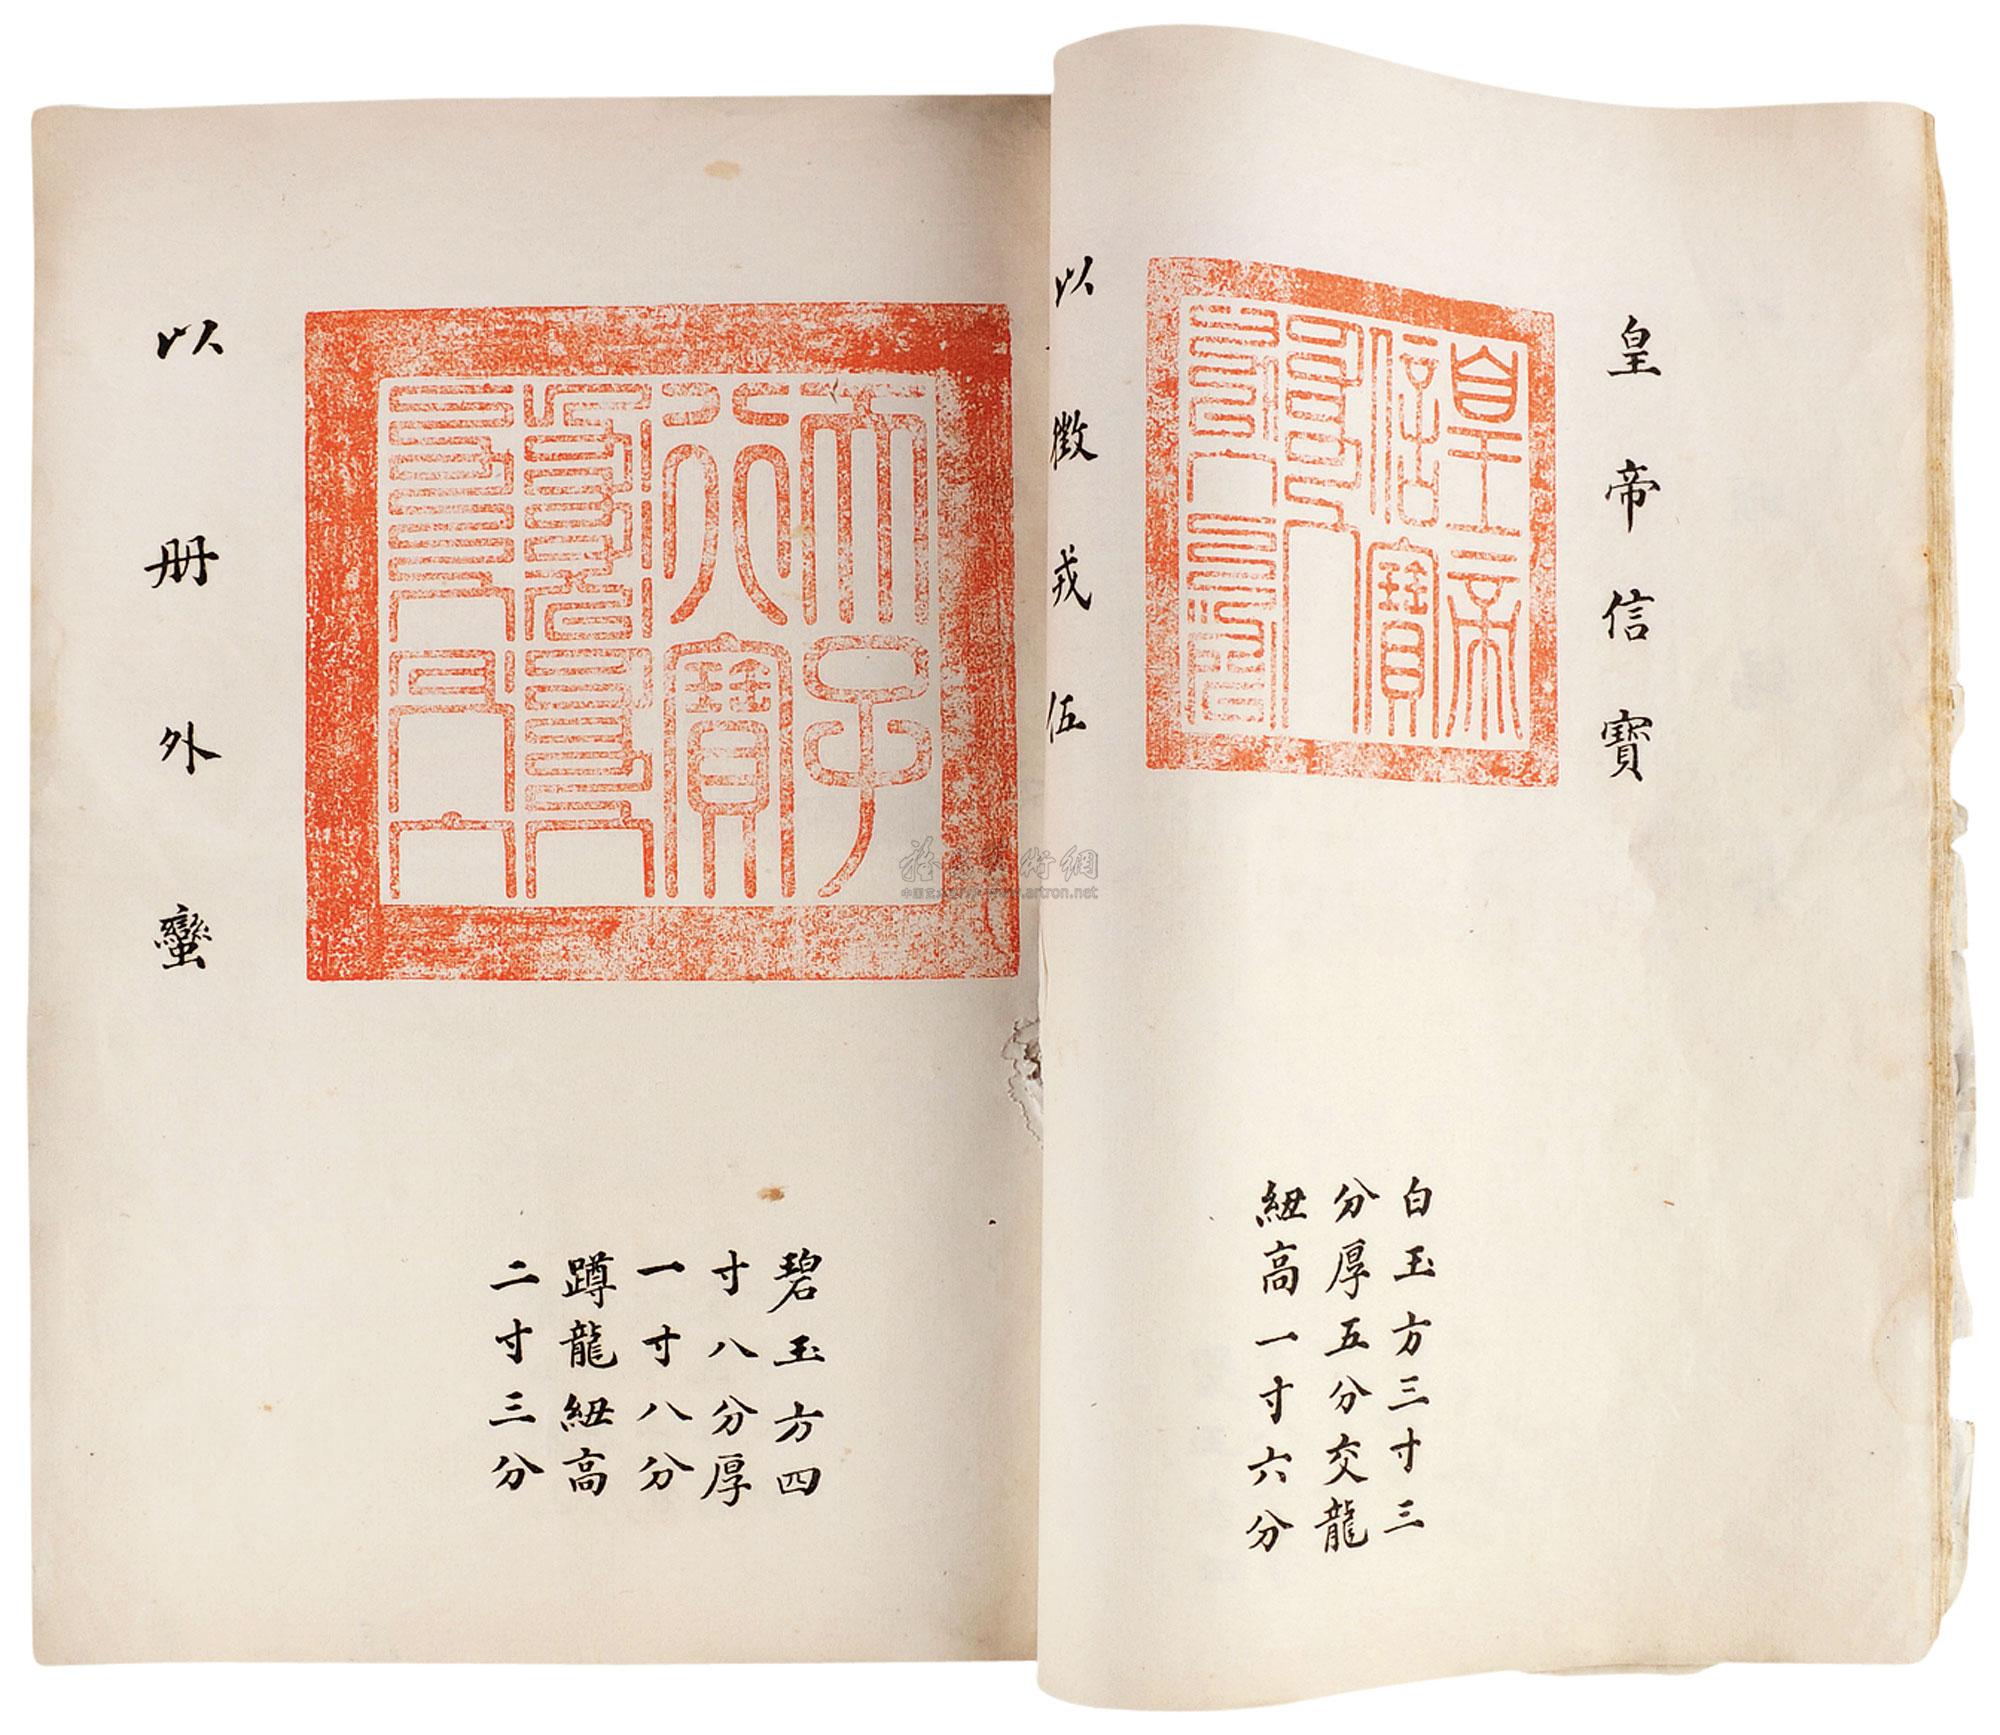 皇帝信寶
皇帝信寶
以徵戎伍
白玉方三寸三
分厚五分交龍
紐高一寸六分
天子行寶
以册外蠻
碧玉方四
寸八分厚
一寸八分
蹲龍紐高
二寸三分
www.artron.net